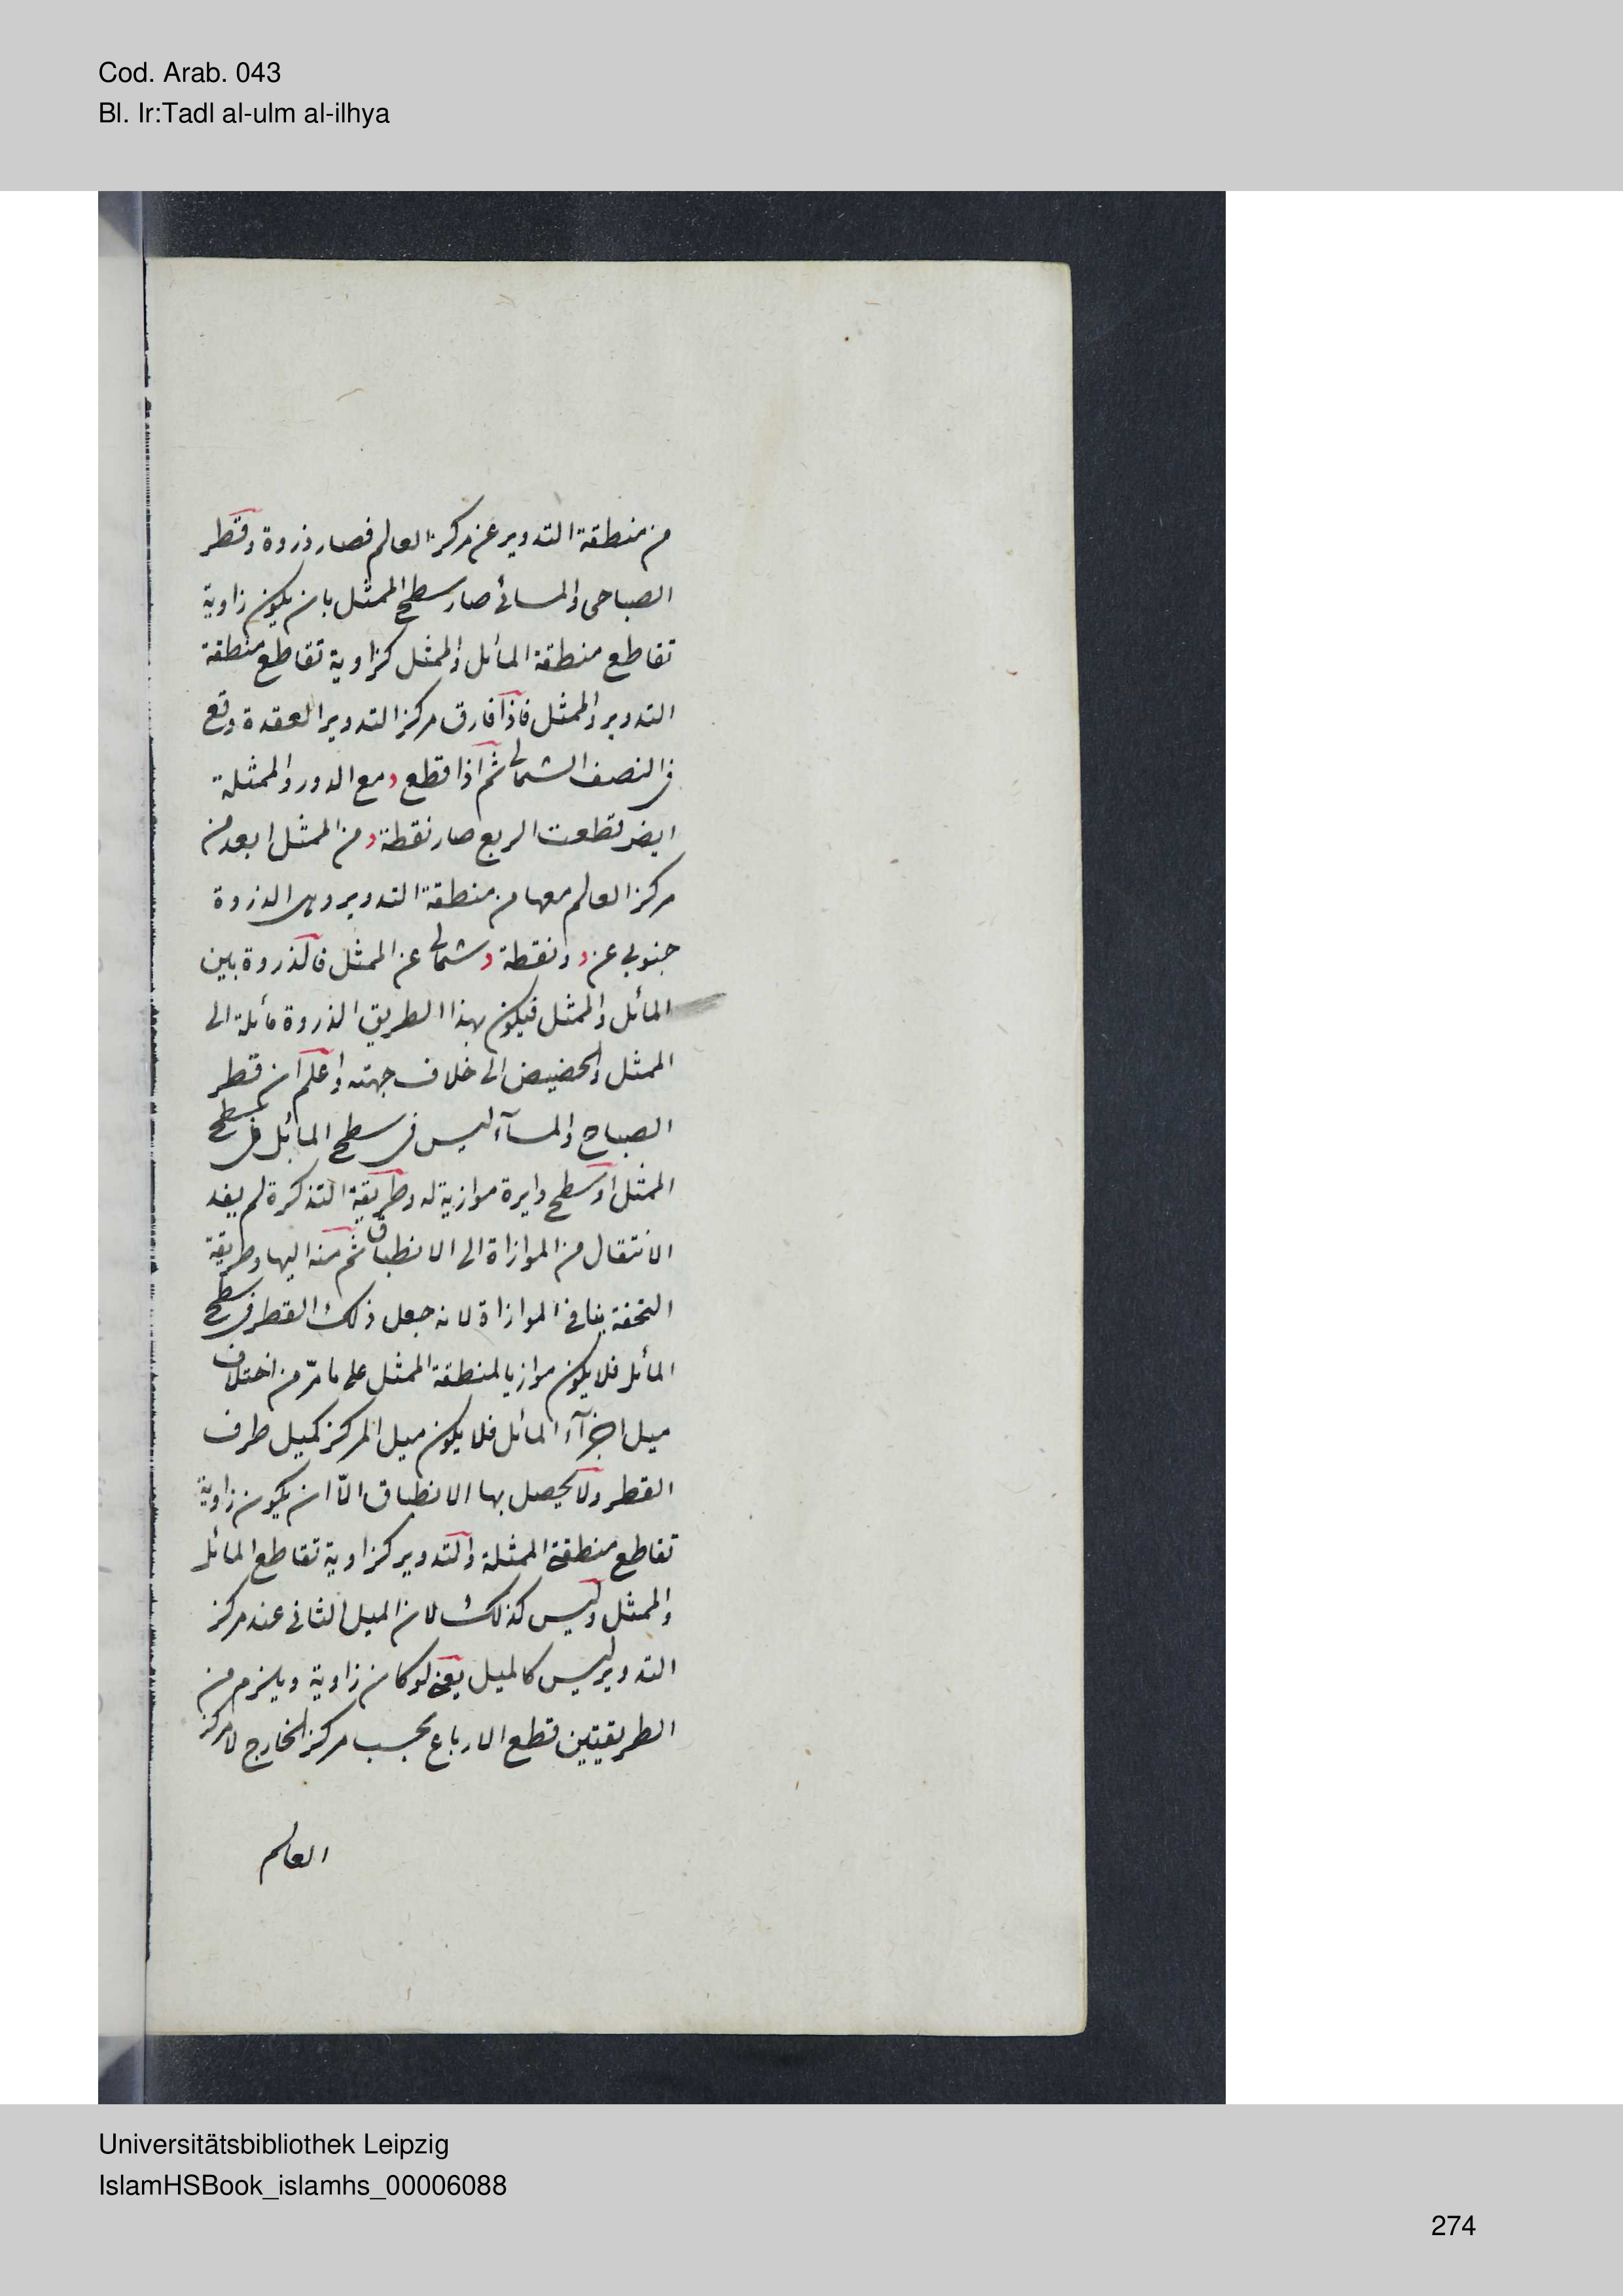 Cod. Arab. 043
Bl. Ir:Tadl al-ulm al-ilhya
من منطقة التدوير عن مركز العالم فصار ذروة وقطر
الصباحى والمسائى صار سطح الممثل بان يكون زاوية
تقاطع منطقة المائل والممثل كزاوية تقاطع منطقة
التدوير والممثل فاذا فارق مركز التدوير العقدة وقع
فى النصف الشمالى ثم اذا قطع د مع الدور والممثلة
ايضر قطعت الربع صار نقطة د من الممثل ابعد من
مركز العالم معها من منطقة التدوير وهى الذروة
جنوبى عن د ونقطة د شمالى عن الممثل فالذروة بين
المائل والممثل فيكون بهذا الطريق الذروة مائلة الى
الممثل والحضيض الى خلاف جهته واعلم ان قطر
الصباح والمسآء ليس فى سطح المائل بل سطح
الممثل او سطح دايرة موازية له وطريقة التذكرة لم يفد
الانتقال من الموازاة الى الانطباق ثم منه اليها وطريقة
التحفة ينافى الموازاة لانه جعل ذلك القطر فى سطح
المائل فلا يكون موازيا لمنطقة الممثل على ما مرّ من اختلاف
ميل اجزآء المائل فلا يكون ميل المركز كميل طرف
القطر ولا يحصل بها الانطباق الّا ان يكون زاوية
تقاطع منطقة الممثلة والتدوير كزاوية تقاطع المائل
والممثل وليس كذلك لان الميل الثانى عند مركز
التدوير ليس كالميل يعنى لو كان زاوية ويلزم من
الطريقتين قطع الارباع بحسب مركز الخارج لا مركز
العالم
Universitätsbibliothek Leipzig
IslamHSBook_islamhs_00006088
274